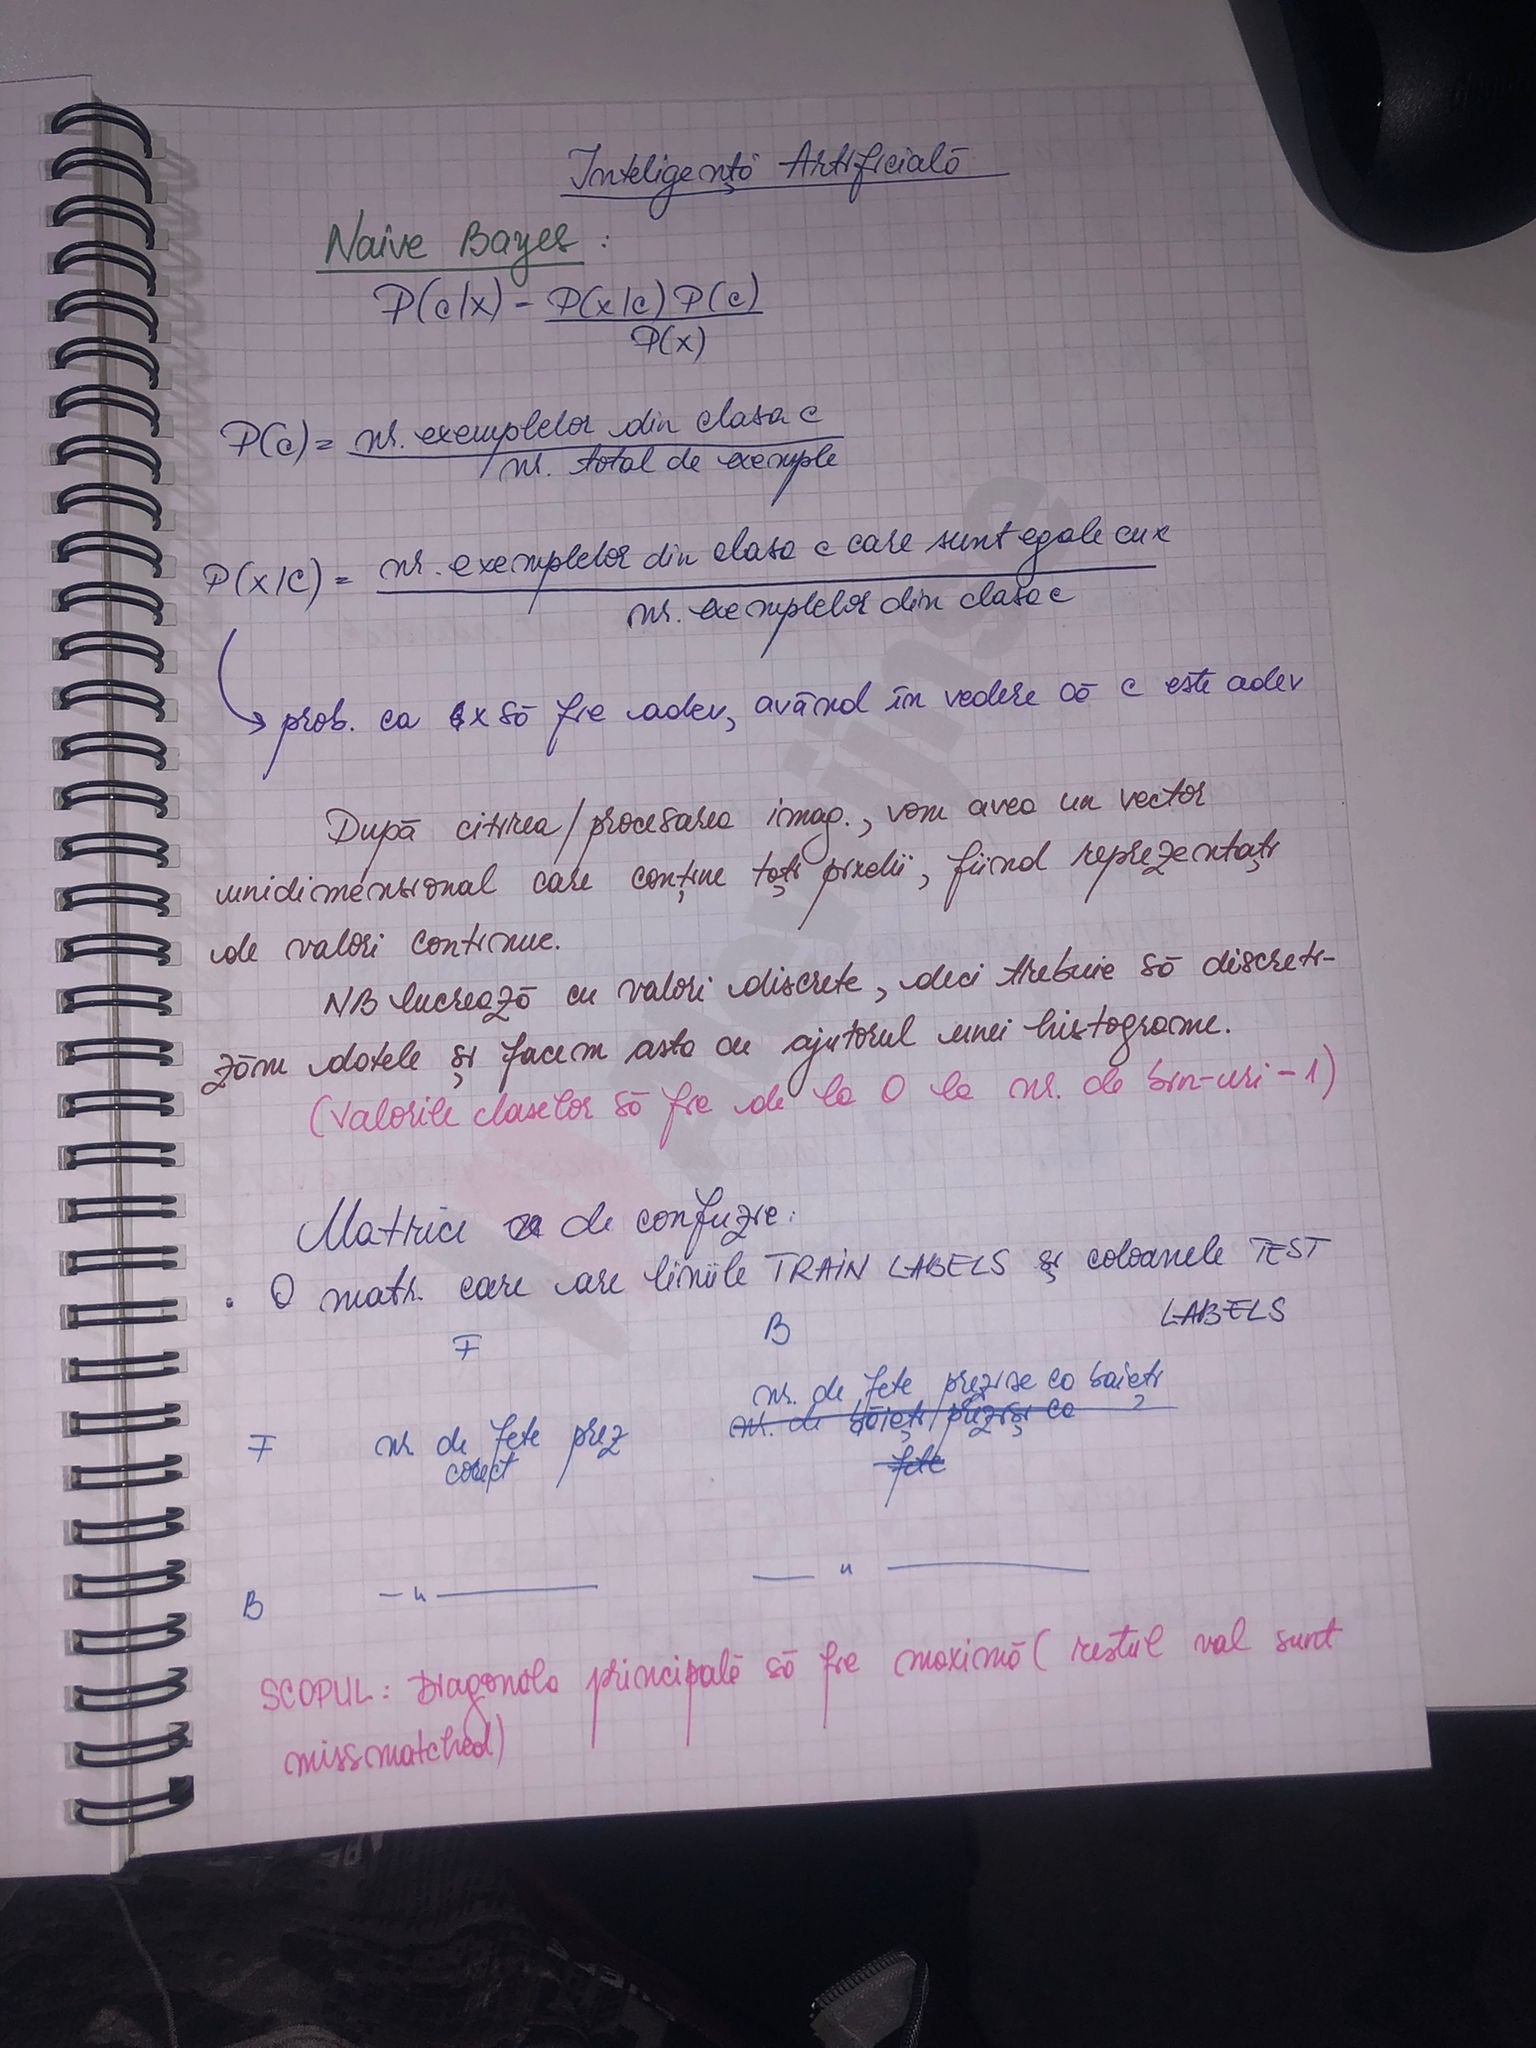 Inteligență Artificială
Naive Bayes :
P(c/x) = P(x/c) P(c)
P(x)
P(c) = nr. exemplelor din clasa c
nr. total de exemple
P(x/c) = nr. exemplelor din clasa c care sunt egale cu x
nr. exemplelor din clasa c
prob. ca x să fie adev, având în vedere că c este adev
După citirea/procesarea imag., vom avea un vector
unidimensional care conține toți pixelii, fiind reprezentați
de valori continue.
NB lucrează cu valori discrete, deci trebuie să discreti-
zăm datele și facem asta cu ajutorul unei histograme.
(Valorile claselor să fie de la 0 la nr. de bin-uri - 1)
Matrice de confuzie:
• O matr. care are liniile TRAIN LABELS și coloanele TEST
LABELS
F B
nr. de fete prezise ca baieți
F nr de fete prez nr. de băieți preziși ca
corect fete
B — " — — " —
SCOPUL: Diagonala principală să fie maximă (restul val sunt
missmatched)